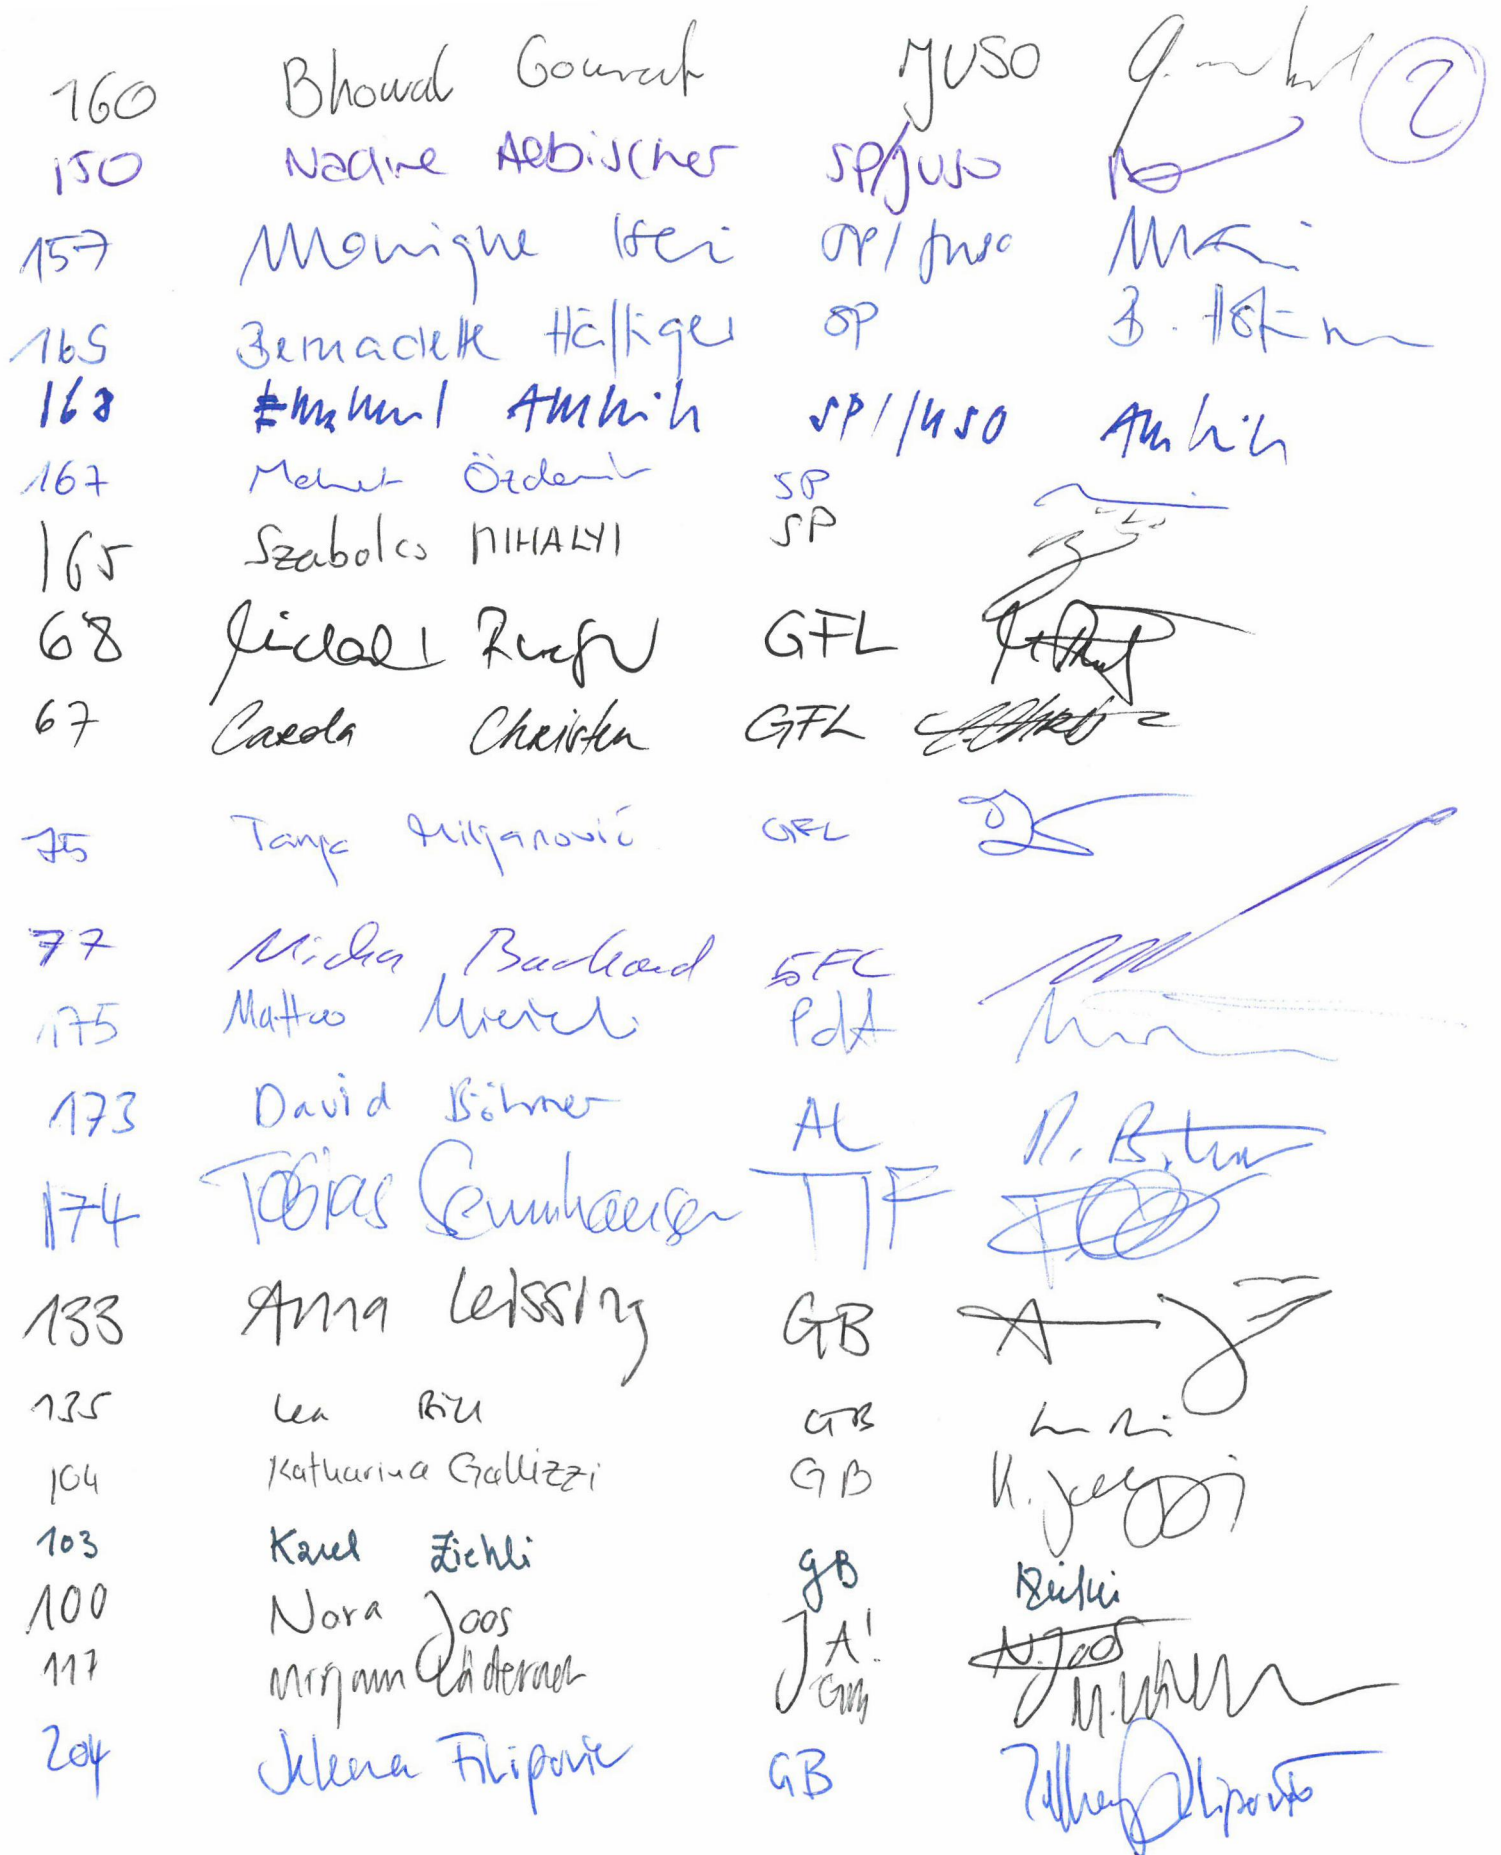 2
160 Bhowal Gourab JUSO
150 Nadine Aebischer SP/JUSO
157 Monique Iseli SP/Juso
165 Bernadette Häfliger SP B.
168 Emanuel Amrein SP/JUSO
167 Mehmet Özdemir SP
165 Szabolcs MIHALYI SP
68 Michael Ruefer GFL
67 Carola Christen GFL
75 Tanja Miljanović GFL
77 Michael Burkard GFL
175 Matteo Micieli PdA
173 David Böhner AL D. Böhner
174 Tobias Sennhauser TIF
133 Anna Leissing GB
135 Lea Bill GB
104 Katharina Gallizzi GB K. Gallizzi
103 Karel Ziehli gB
100 Nora Joos JA! N. Joos
117 Mirjam Läderach GB
204 Jelena Filipovic GB